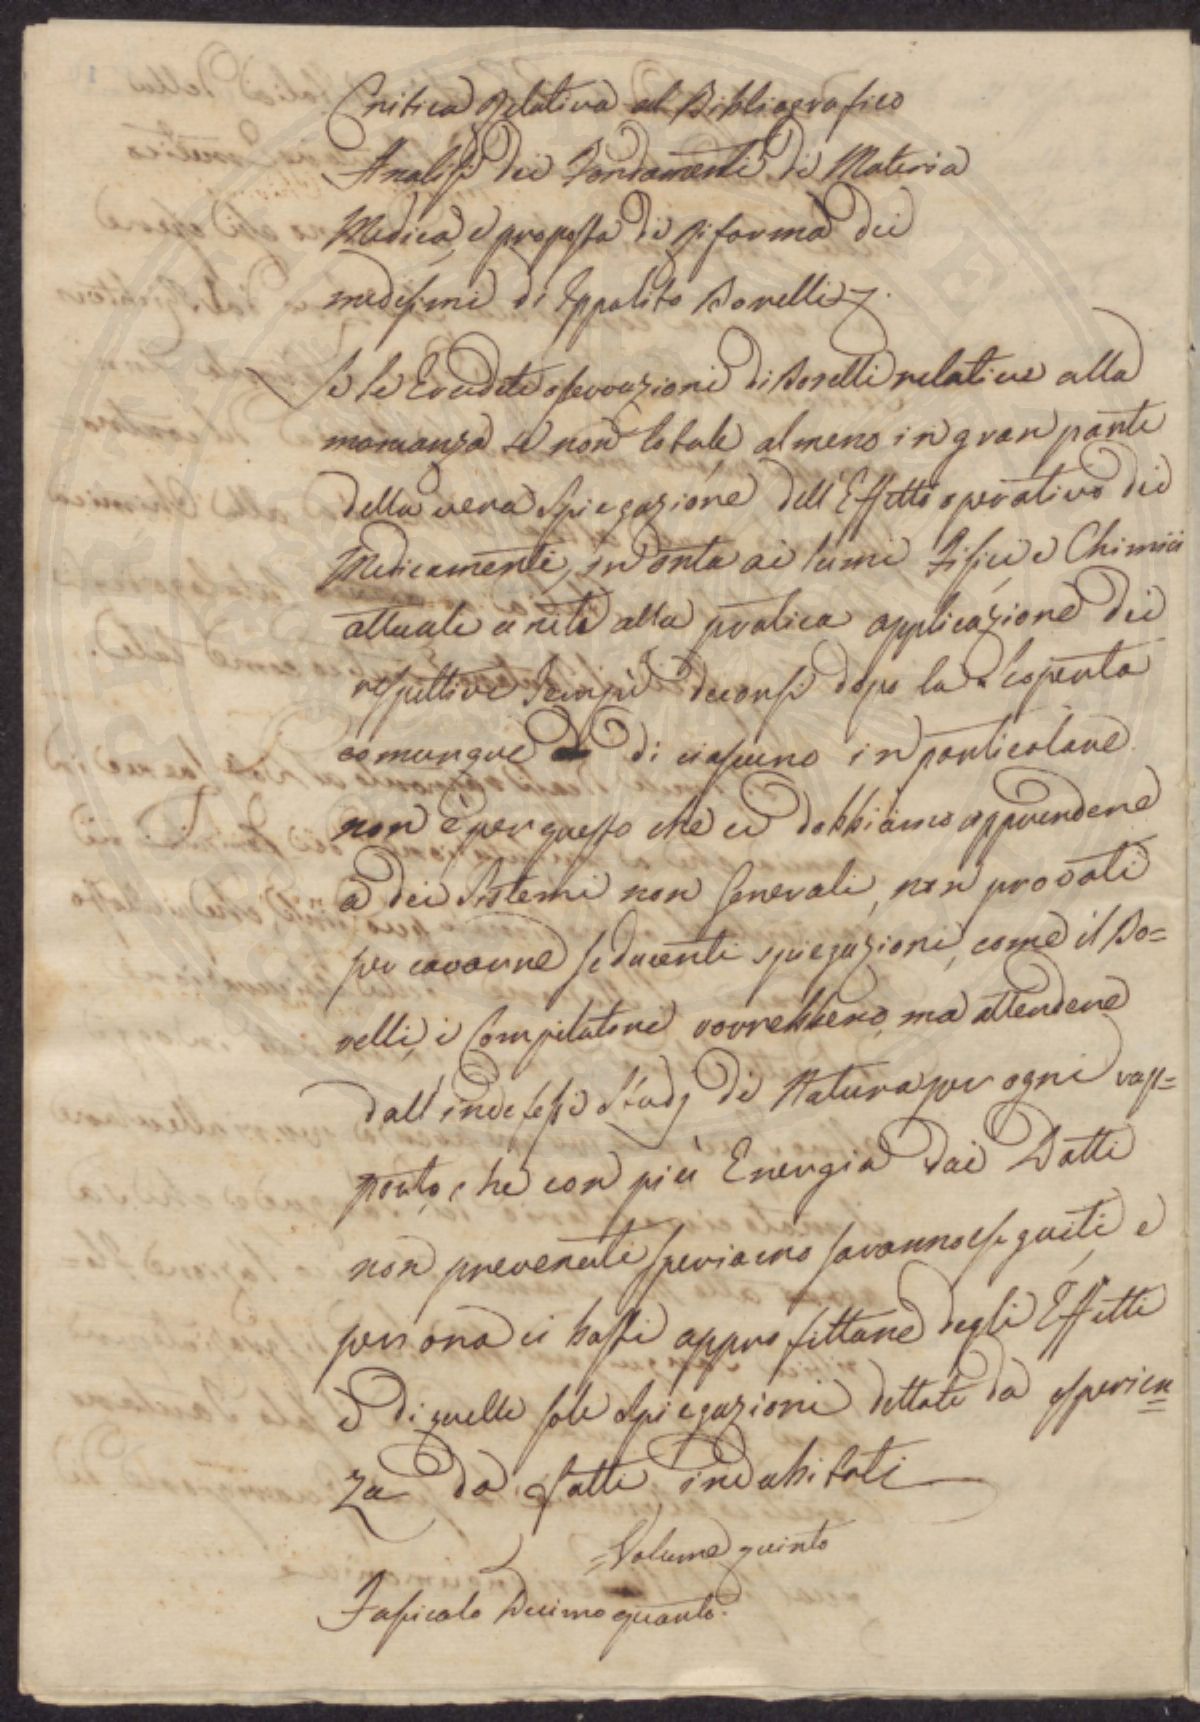 Critica Relativa al Bibliografico
Analisi dei Fondamenti di Materia
Medica, e proposta di Riforma dei
medesimi di Ippolito Borelli
Se le Erudite osservazioni di Borelli relative alla
mancanza se non totale almeno in gran parte
della vera Spiegazione dell'Effetto operativo dei
Medicamenti, in onta ai lumi Fisici e Chimici
attuali uniti alla pratica applicazione dei
respettivi Tempi decorsi dopo la scoperta
comunque di ciascuno in particolare
non è per questo che ci dobbiamo apprendere
a dei Sistemi non Generali, non provati
per cavarne seducenti spiegazioni, come il Bo=
relli, i Compilatori vorrebbero, ma attendere
dall'indefessi Studj di Natura per ogni rap=
porto, che con più Energia dai Dotti
non prevenuti speriamo saranno eseguiti, e
per ora ci basti approfittare degli Effetti
e di quelle sole Spiegazioni dettate da esperien=
za da fatti indubitati
=Volume quinto
Fasicolo Decimo quarto.